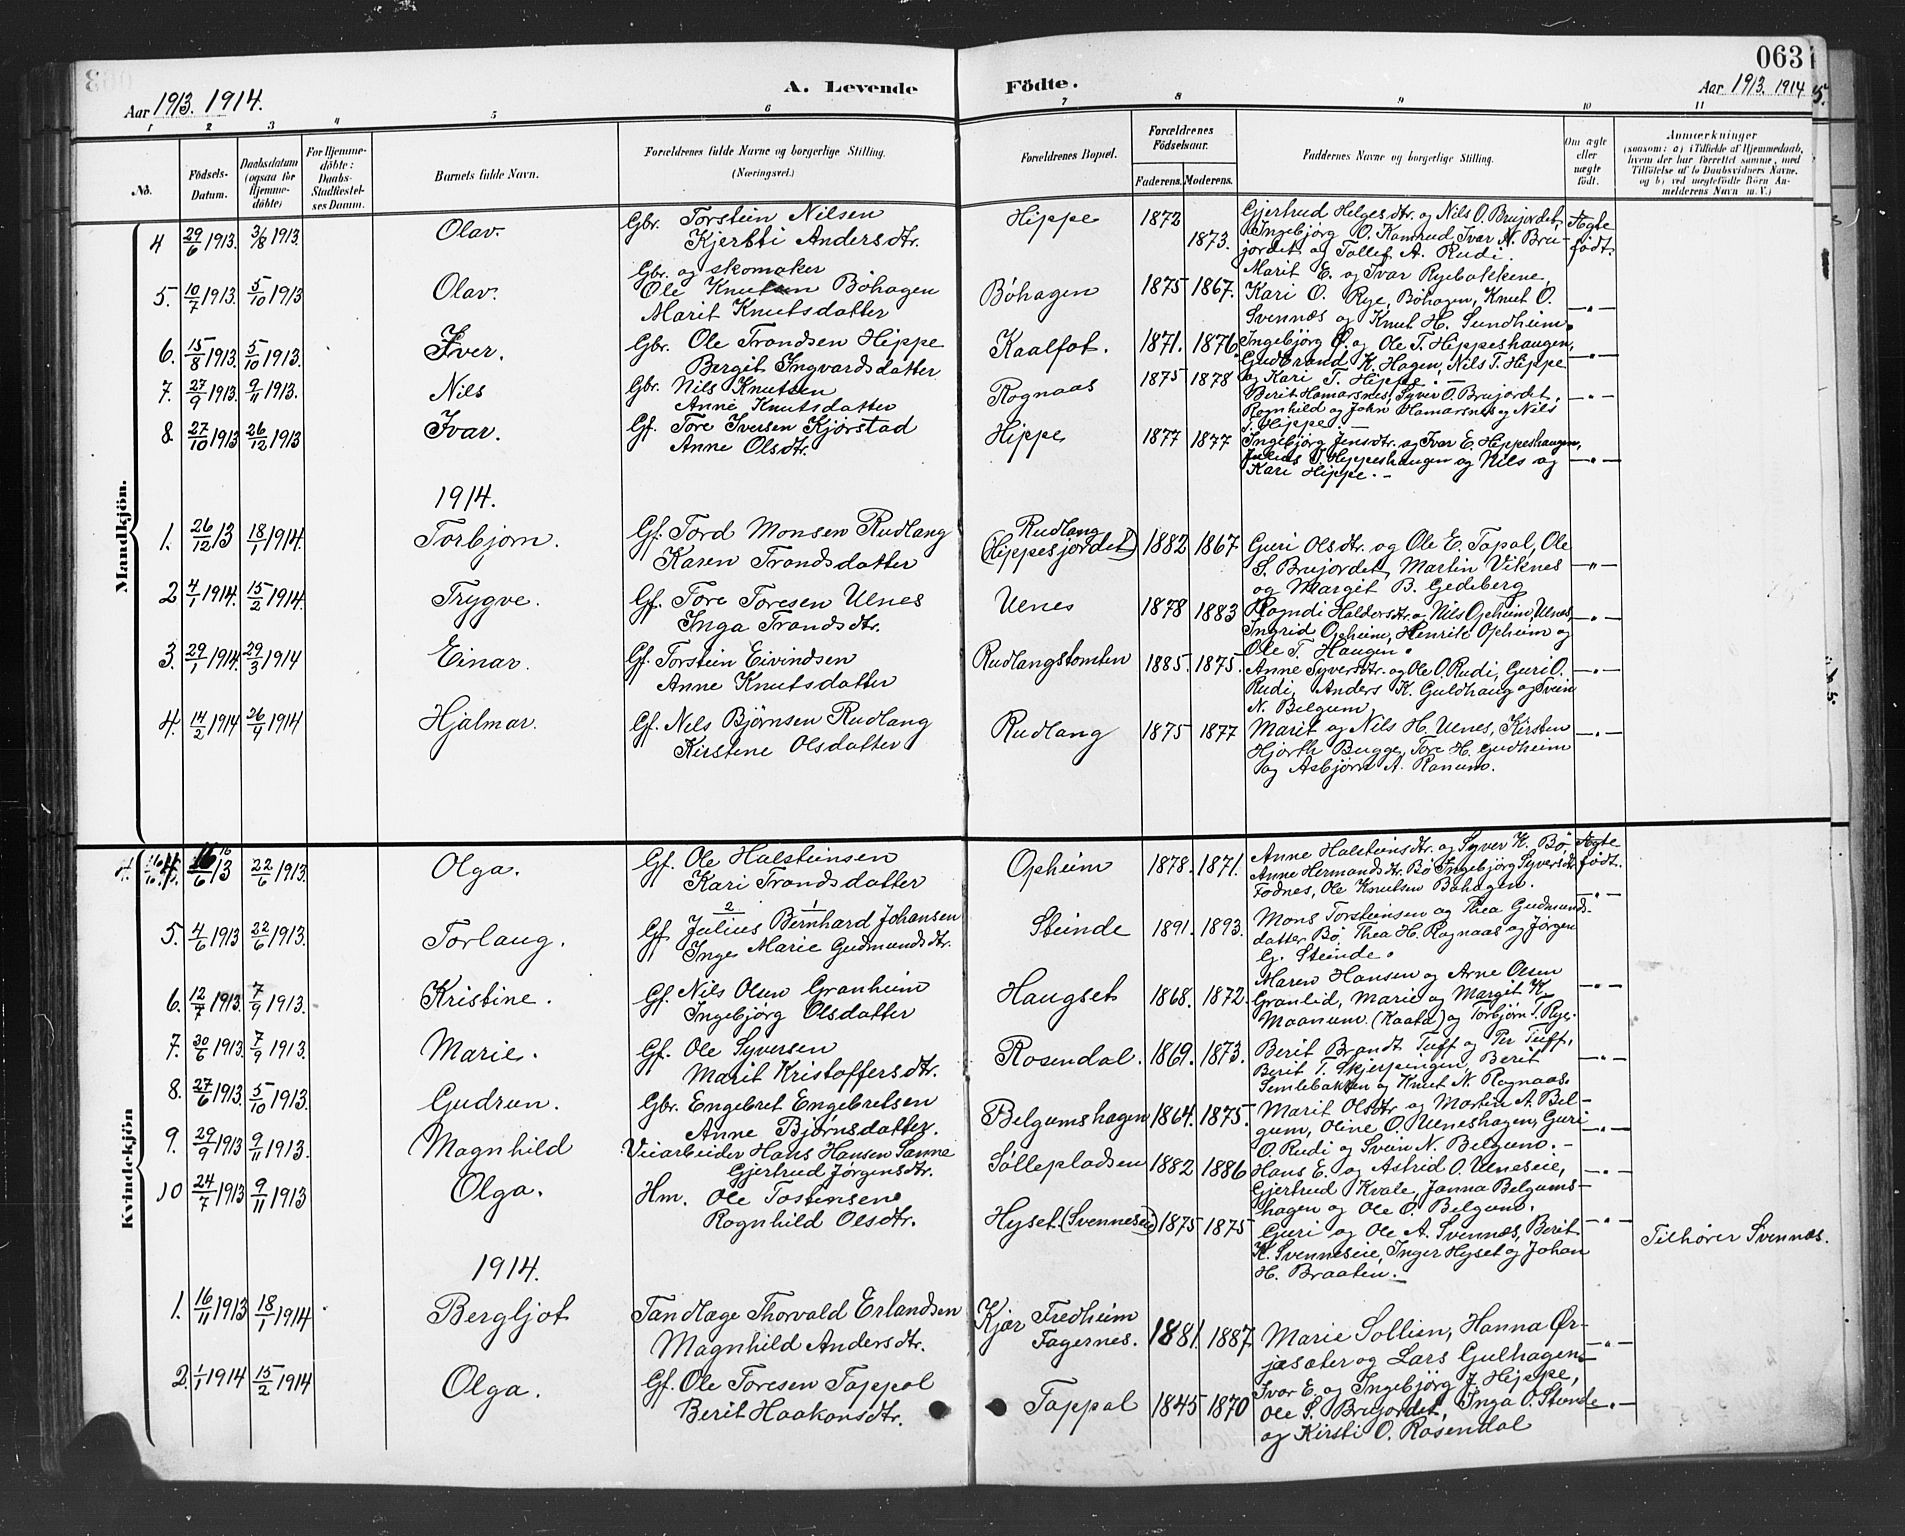 063
Aar 1913. 1914.
A. Levende Födte.
Aar 1913. 1914
1 2 3 4 5 6 7 8 9 10 11
No.
Födsels-Datum.
Daabsdatum (ogsaa for Hjemme-döbte)
For Hjemme-döbte: Daabs-Stadfæstel-ses Datum.
Barnets fulde Navn.
Forældrenes fulde Navne og borgerlige Stilling. (Næringsvei.)
Forældrenes Bopæl.
Forældrenes Födselsaar.
Faderens. Moderens.
Faddernes Navne og borgerlige Stilling.
Om ægte eller uægte födt.
Anmærkninger
(saasom: a) i Tilfælde af Hjemmedaab, hvem der har forrettet samme, med Tilföielse af to Daabsvidners Navne, og b) ved uægtefödte Börn An-melderens Navn m. V.)
Mandkjön.
4 29/6 1913. 3/8 1913. Olav. Gbr. Torstein Nilsen Hippe 1872 Gjertrud Helgesdtr. og Nils O. Brujordet, Ægte
Kjersti Andersdtr. 1873. Ingebjørg O. Kamrud, Ivar N. Bru- født.
jordet og Tollef A. Rudi.
5. 10/7 1913. 5/10 1913 Olav. Gbr. og skomaker Marit E. og Ivar Ryebakkene,
Ole Knutsen Böhagen Böhagen 1875 1867. Kari O. Rye, Böhagen, Knut O.
Marit Knutsdatter Svennæs og Knut H. Sundheim. -"-
6. 15/8 1913. 5/10 1913. Iver. Gbr. Ole Trondsen Hippe Kaalfot. 1871. 1876 Ingebjörg O. og Ole T. Hippeshaugen,
Bergit Ingvardsdatter Gudbrand K. Hagen, Nils T. Hippe -"-
og Kari T. Hippe. -
7. 27/9 1913. 9/11 1913. Nils Gbr. Nils Knutsen Rognaas 1875 1878 Berit Hamarsnes, Syver O. Brujordet,
Anne Knutsdatter Rognhild og John Hamarsnes og Nils -"-
T. Hippe. -
8. 27/10 1913 26/12 1913 Ivar. Gf. Tore Iversen Kjörstad Hippe 1877 1877 Ingebjörg Jensdtr. og Ivar E. Hippeshaugen,
Anne Olsdtr. Julius I. Hippeshaugen og Nils og -"-
Kari Hippe. -
1914.
1. 26/12 13 18/1 1914. Torbjørn. Gf. Tord Monsen Rudlang Rudlang 1882 1867. Guri Olsdtr. og Ole E. Tapal, Ole
Karen Trondsdatter (Hippesjordet) S. Brujordet, Martin Viknes -"-
og Margit B. Gedeberg
2 4/1 1914. 15/2 1914. Trygve. Gf. Tore Toresen Ulnes Ulnes 1878 1883 Rogndi Haldorsdtr. og Nils Opheim, Ulnes,
Inga Trondsdtr. Ingrid Opheim, Henrik Opheim og -"-
Ole T. Haugen.
3. 29/1 1914. 29/3 1914 Einar. Gf. Torstein Eivindsen Rudlangstomten 1885. 1875. Anne Syversdtr. og Ole O. Rudi, Guri O.
Anne Knutsdatter Rudi, Anders K. Guldhaug og Svein -"-
N. Belgum.
4. 14/2 1914 26/4 1914 Hjalmar. Gf. Nils Bjørnsen Rudlang Rudlang 1875 1877 Marit og Nils H. Ulnes, Kirsten
Kirstene Olsdatter Hjorth Bugge, Tore H. Gudheim -"-
og Asbjørn A. Ranum.
Kvindekjön
4. 16/6 13 22/6 1913. Olga. Gf. Ole Halsteinsen Opheim 1878. 1871. Anne Halsteinsdtr. og Syver K. Bö, Ægte
Kari Trondsdatter Anne Hermandsdtr. Bö, Ingebjörg Syversdtr. født.
Fodnes, Ole Knutsen Böhagen. -"-
5. 4/6 1913 22/6 1913. Torlaug. Gf. Julius Bernhard Johansen Steinde 1891. 1893. Mons Torsteinsen og Thea Gudmunds-
Inge Marie Gudmundsdtr. datter Bö, Thea H. Rognaas og Jørgen
G. Steinde.
6. 12/7 1913. 7/9 1913. Kristine. Gf. Nils Olsen Granheim Haugset 1868. 1872. Maren Hansen og Arne Olsen
Ingebjørg Olsdatter Granlid, Marie og Margit K. -"-
Maanum (Kaata) og Torbjørn T. Rye.
7. 20/6 1913. 7/9 1913. Marie. Gf. Ole Syversen Rosendal. 1869. 1873. Berit Brandt Tuff og Per Tuff,
Marit Kristoffersdtr. Berit T. Skjerpingen, Berit -"-
Semlebakken og Knut N. Rognaas.
8. 27/6 1913. 5/10 1913. Gudrun. Gbr. Engebret Engebretsen Belgumshagen 1864. 1875. Marit Olsdtr og Morten A. Bel-
Anne Bjørnsdatter. gum, Oline O. Ulneshagen, Guri -"-
O. Rudi og Svein N. Belgum. -
9. 29/9 1913 9/11 1913. Magnhild Veiarbeider Hans Hansen Sanne Söllepladsen 1882 1886 Hans E. og Astrid O. Ulneseie,
Gjertrud Jørgensdtr. Gjertrud Kvale, Janna Belgums- -"-
hagen og Ole O. Belgum.
10 24/7 1913 9/11 1913 Olga. Hm. Ole Tostensen Hyset. (Svenneseie) 1875 1875 Guri og Ole A. Svennæs, Berit -"-
Rognhild Olsdtr. K. Svenneseie, Inger Hyset og Johan Tilhører Svennæs.
H. Braaten. -
1914.
1. 16/11 1913 18/1 1914 Bergljot Tandlæge Thorvald Erlandsen Kjær Fredheim 1881. 1887. Marie Sollien, Hanna Ør-
Magnhild Andersdtr. Fagernes. jasæter og Lars Gulhagen. -"-
2. 1/1 1914 15/2 1914 Olga. Gf. Ole Toresen Tappal Tappal 1845 1870 Ivar E. og Ingebjørg J. Hippe,
Berit Haakonsdtr. Ole S. Brujordet, Inga O. Steinde -"-
og Kirsti O. Rosendal